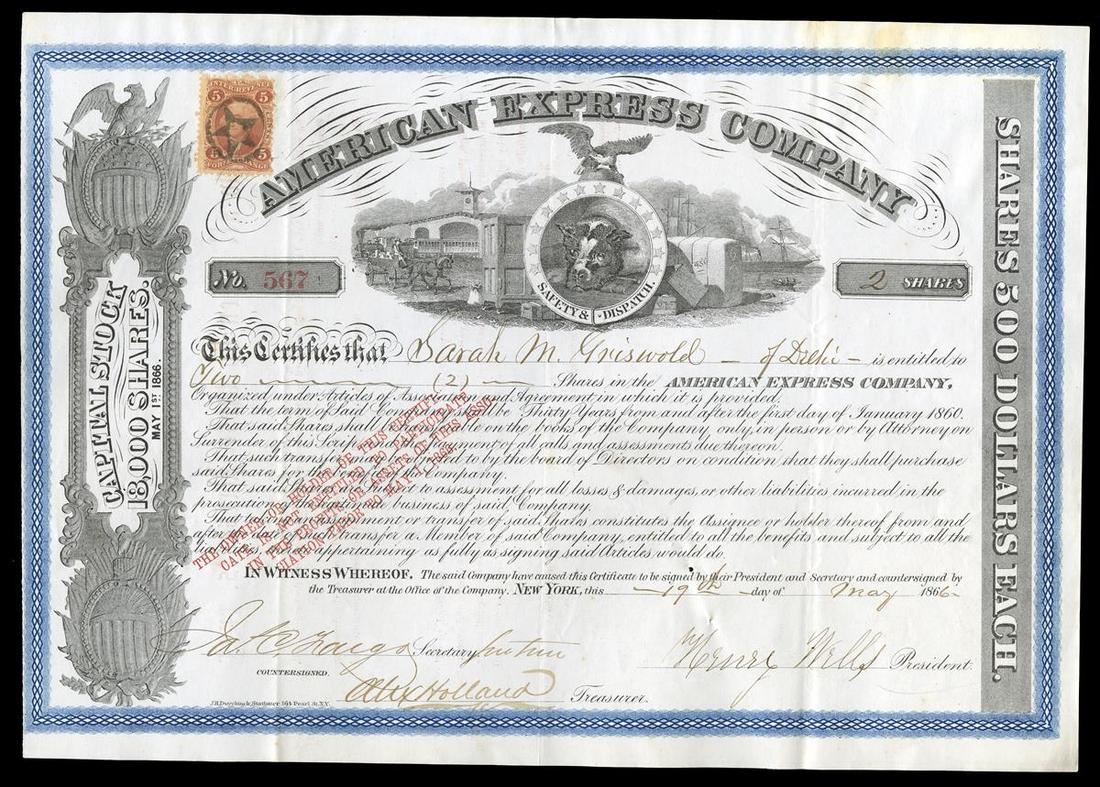 INTER. REVENUE
5 5
CENTS
5 5
AMERICAN EXPRESS COMPANY
SAFETY & DISPATCH.
No. 567
2 SHARES
CAPITAL STOCK
18,000 SHARES.
MAY 1ST 1866.
SHARES 500 DOLLARS EACH.
This Certifies that Sarah M. Griswold of is entitled to
Two (2) Shares in the AMERICAN EXPRESS COMPANY.
Organized under Articles of and Agreement in which it is provided.
That the term of said shall be Thirty Years from and after the first day of January 1860.
That said Shares shall be on the books of the Company only, in person or by Attorney on
Surrender of this Scrip and Payment of all calls and assessments due thereon.
That such transfer to by the board of Directors on condition that they shall purchase
said Shares for the Company.
That said to assessment for all losses & damages, or other liabilities incurred in the
business of said Company.
That the or transfer of said Shares constitutes the Assignee or holder thereof from and
after transfer a Member of said Company, entitled to all the benefits and subject to all the
appertaining as fully as signing said Articles would do.
THE OWNER OR HOLDER OF THIS CERTIFI-
CATE IS NOT ENTITLED TO PARTICIPATE
IN THE PROFITS OR ASSETS OF THIS ASSO-
CIATION PRIOR TO MAY 1, 1866.
IN WITNESS WHEREOF. The said Company have caused this Certificate to be signed by their President and Secretary and countersigned by
the Treasurer at the Office of the Company. NEW YORK, this 19th day of May 1866
J. C. Fargo Secretary Henry Wells President.
COUNTERSIGNED.
Alex Holland Treasurer.
Stationer 164 Pearl St. N.Y.